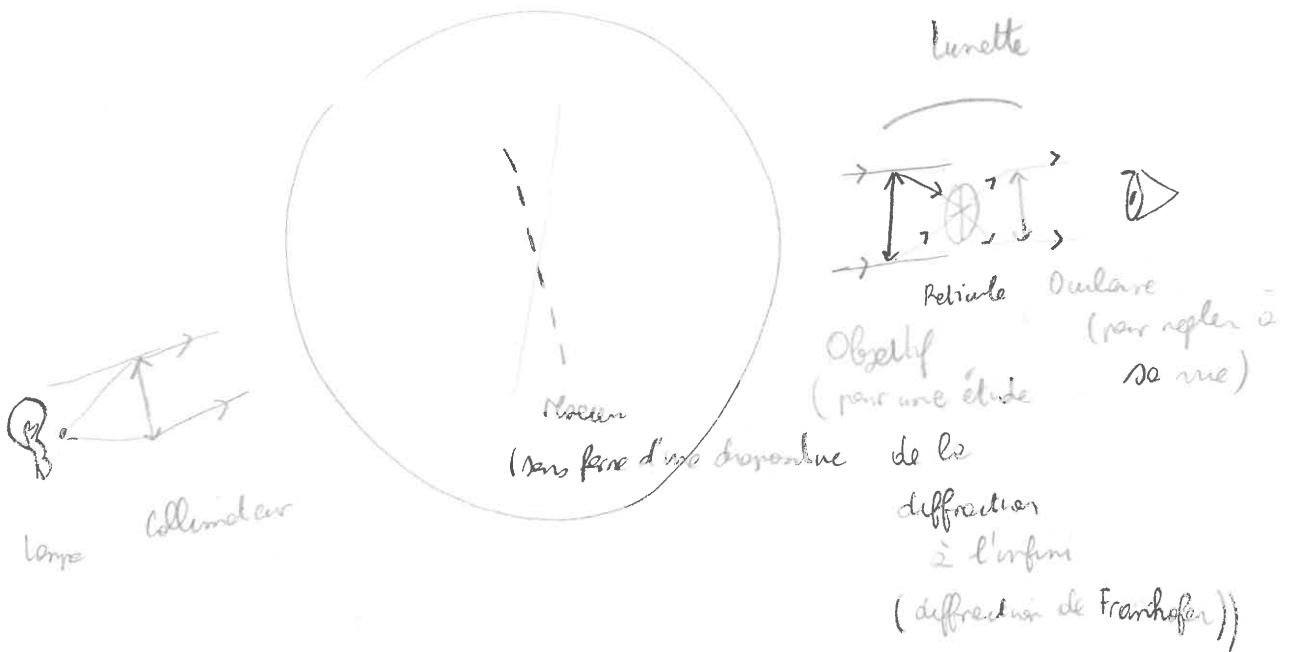 Lunette
Reticule
Oculaire
(pour regler à
sa vue)
Objectif
(pour une étude
de la
diffraction
à l'infini
(diffraction de Fraunhofer))
reseau
(sous forme d'une diapositive
Collimateur
lampe